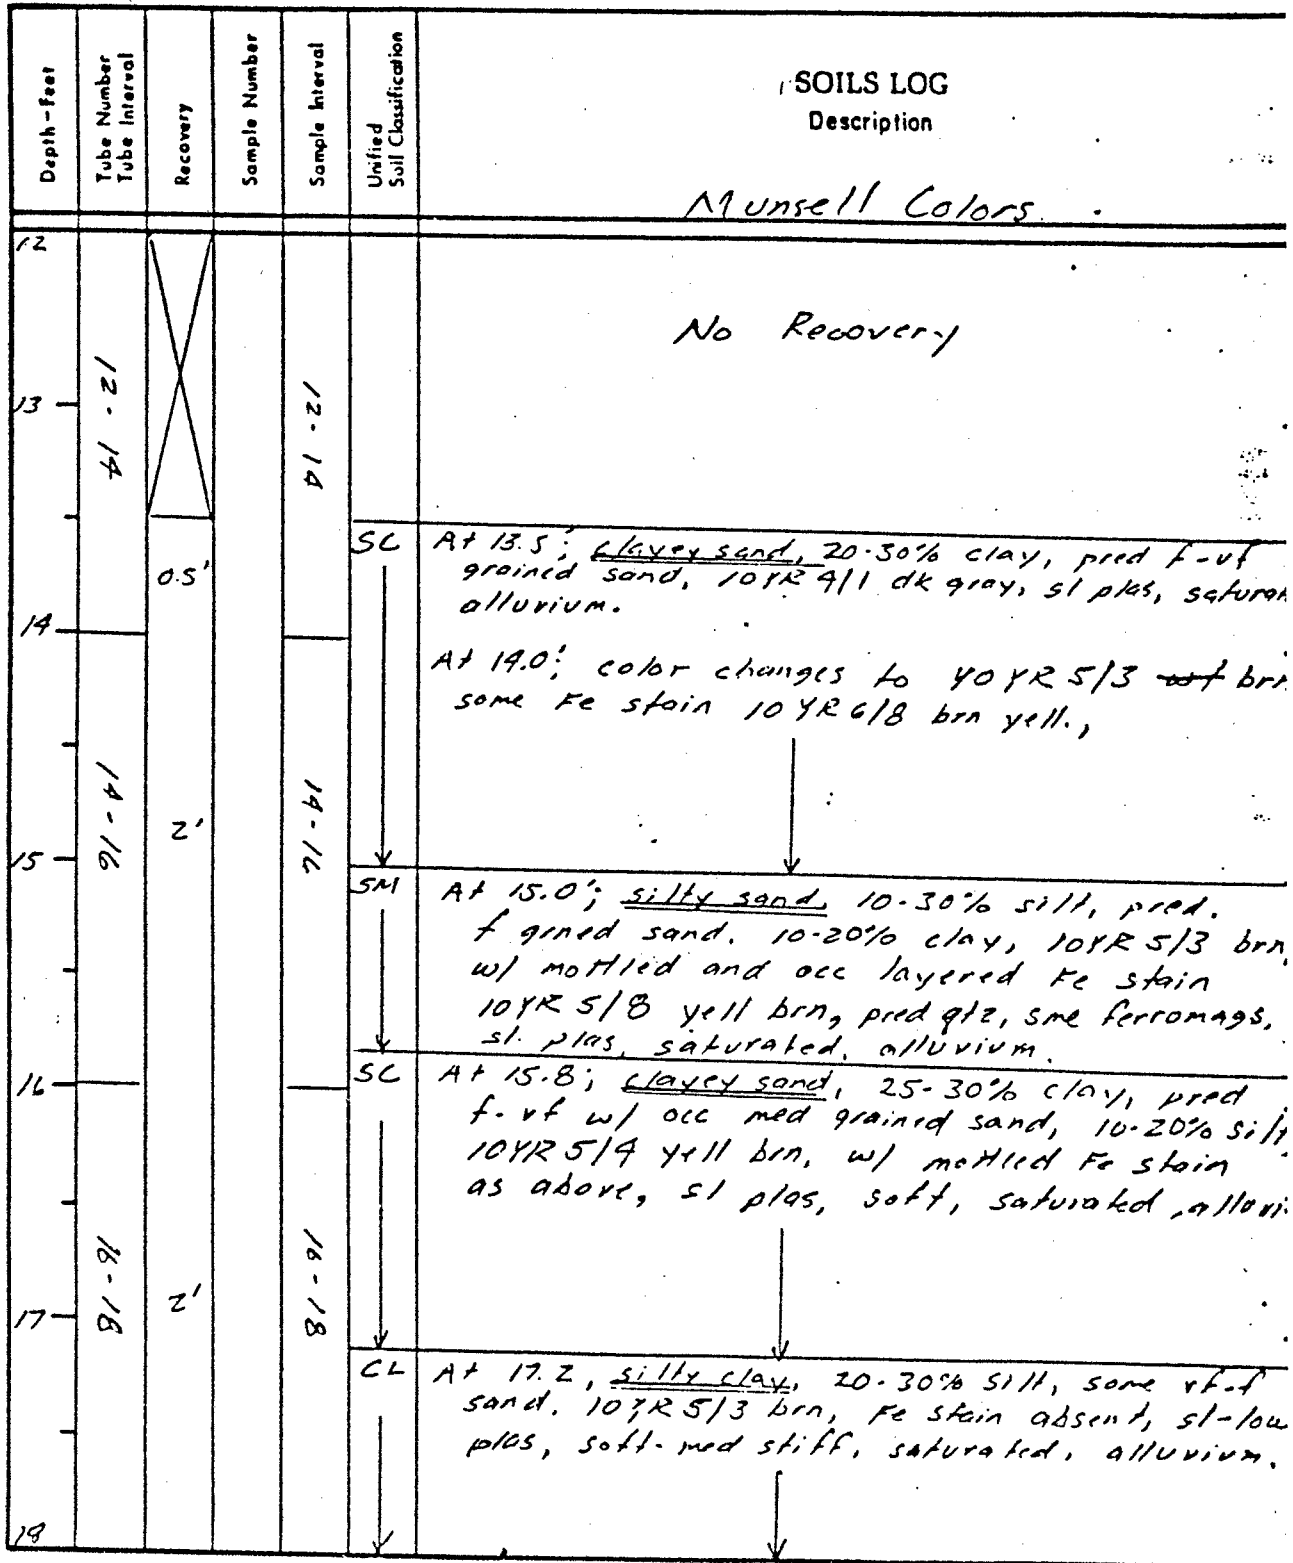 SOILS LOG
Depth-Feet
Tube Number
Tube Interval
Recovery
Sample Number
Sample Interval
Unified
Soil Classification
Description
Munsell Colors
12
No Recovery
13
12-14
12-14
SC At 13.5'; clayey sand, 20-30% clay, pred f-vf
0.5'
grained sand, 10YR 4/1 dk gray, sl plas,
alluvium.
14
At 14.0'; color changes to YOYR 5/3
some Fe stain 10YR 6/8 brn yell.,
14-16
2'
14-16
15
SM At 15.0'; silty sand, 10-30% silt, pred.
f grned sand. 10-20% clay, 10YR 5/3 brn,
w/ mottled and occ layered Fe stain
10YR 5/8 yell brn, pred qtz, sme ferromags,
sl. plas, saturated, alluvium.
16
SC At 15.8; clayey sand, 25-30% clay, pred
f-vf w/ occ med grained sand, 10-20%
10YR 5/4 yell brn, w/ mottled Fe stain
as above, sl plas, soft, saturated,
16-18
2'
16-18
17
CL At 17.2, silty clay, 20-30% silt, some vf-f
sand. 10YR 5/3 brn, Fe stain absent, sl-low
plas, soft-med stiff, saturated, alluvium.
18